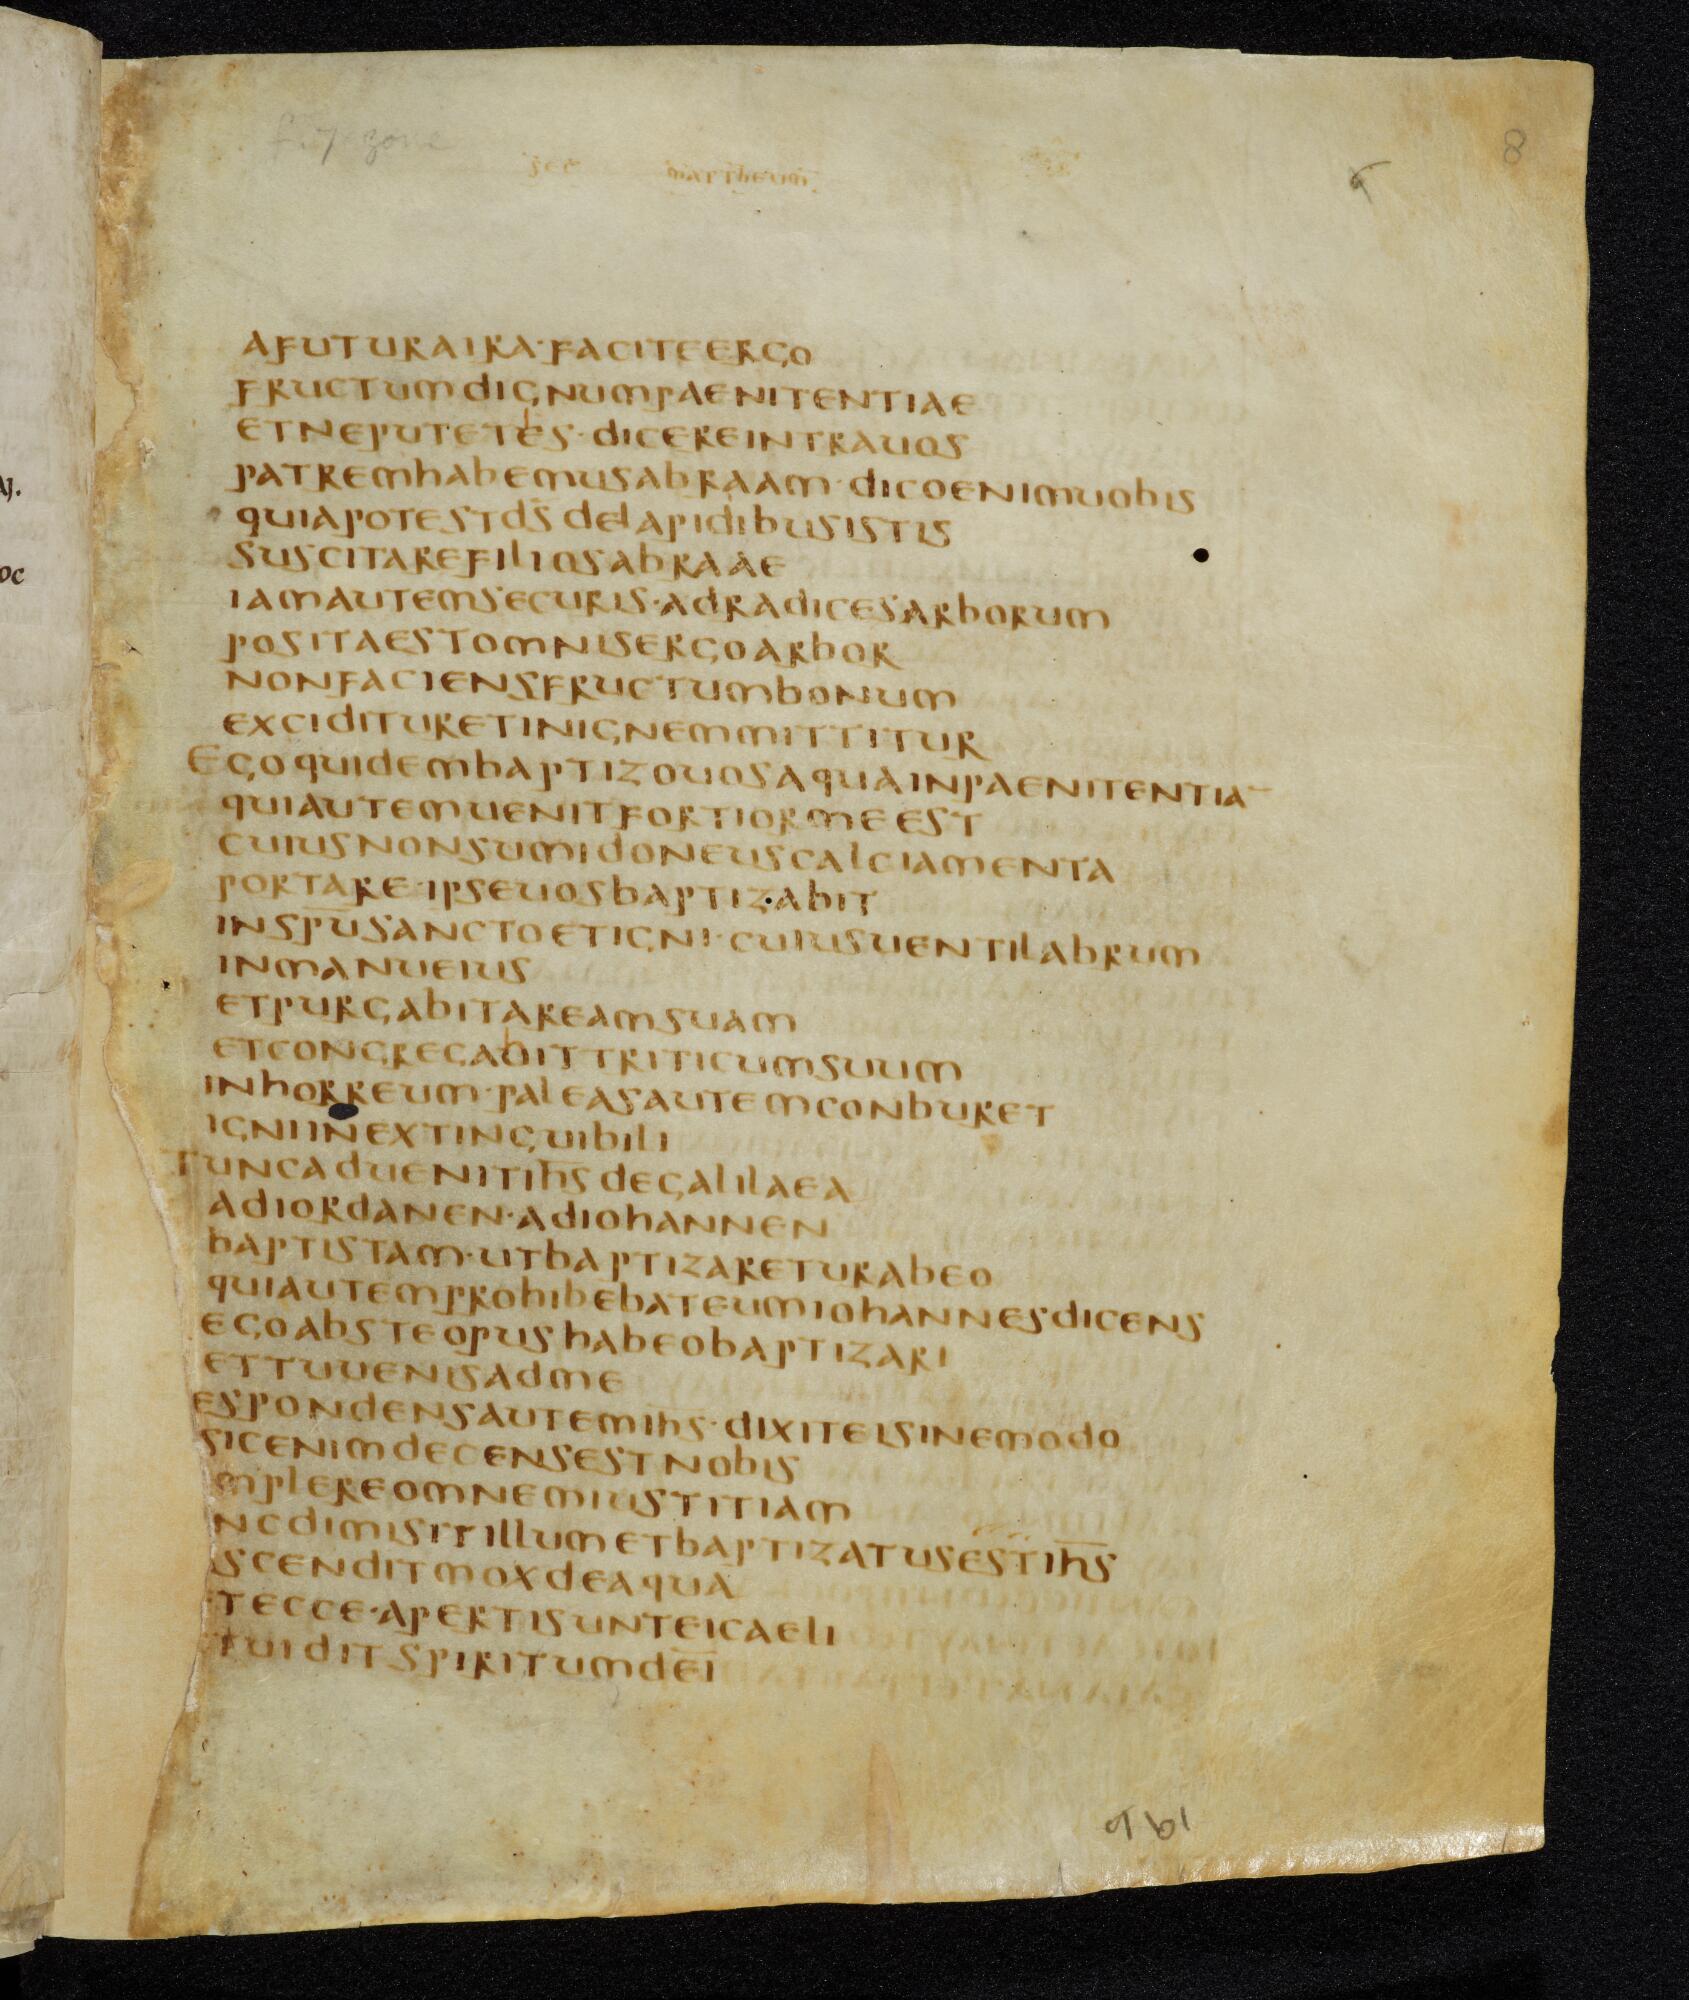 sec mattheum
8
AFUTURAIRA·FACITEERGO
FRUCTUMDIGNUMPAENITENTIAE
ETNEPUTETES·DICEREINTRAUOS
PATREMHABEMUSABRAAM·DICOENIMUOBIS
QUIAPOTESTD̅S̅DELAPIDIBUSISTIS
SUSCITAREFILIOSABRAAE
IAMAUTEMSECURIS·ADRADICESARBORUM
POSITAESTOMNISERGOARBOR
NONFACIENSFRUCTUMBONUM
EXCIDITURETINIGNEMMITTITUR
EGOQUIDEMBAPTIZOUOSAQUAINPAENITENTIA̅
QUIAUTEMUENITFORTIORMEEST
CUIUSNONSUMIDONEUSCALCIAMENTA
PORTARE·IPSEUOSBAPTIZABIT
INSP̅U̅SANCTOETIGNI·CUIUSUENTILABRUM
INMANUEIUS
ETPURGABITAREAMSUAM
ETCONGREGABITTRITICUMSUUM
INHORREUM·PALEASAUTEMCONBURET
IGNIINEXTINGUIBILI
TUNCADUENITIH̅S̅DEGALILAEA
ADIORDANEN·ADIOHANNEN
BAPTISTAM·UTBAPTIZARETURABEO
QUIAUTEMPROHIBEBATEUMIOHANNESDICENS
EGOABSTEOPUSHABEOBAPTIZARI
ETTUUENISADME
ESPONDENSAUTEMIH̅S̅·DIXITEISINEMODO
SICENIMDECENSESTNOBIS
MPLEREOMNEMIUSTITIAM
NCDIMISITILLUMETBAPTIZATUSESTIH̅S̅
SCENDITMOXDEAQUA
TECCE·APERTISUNTEICAELI
TUIDITSPIRITUMDEI